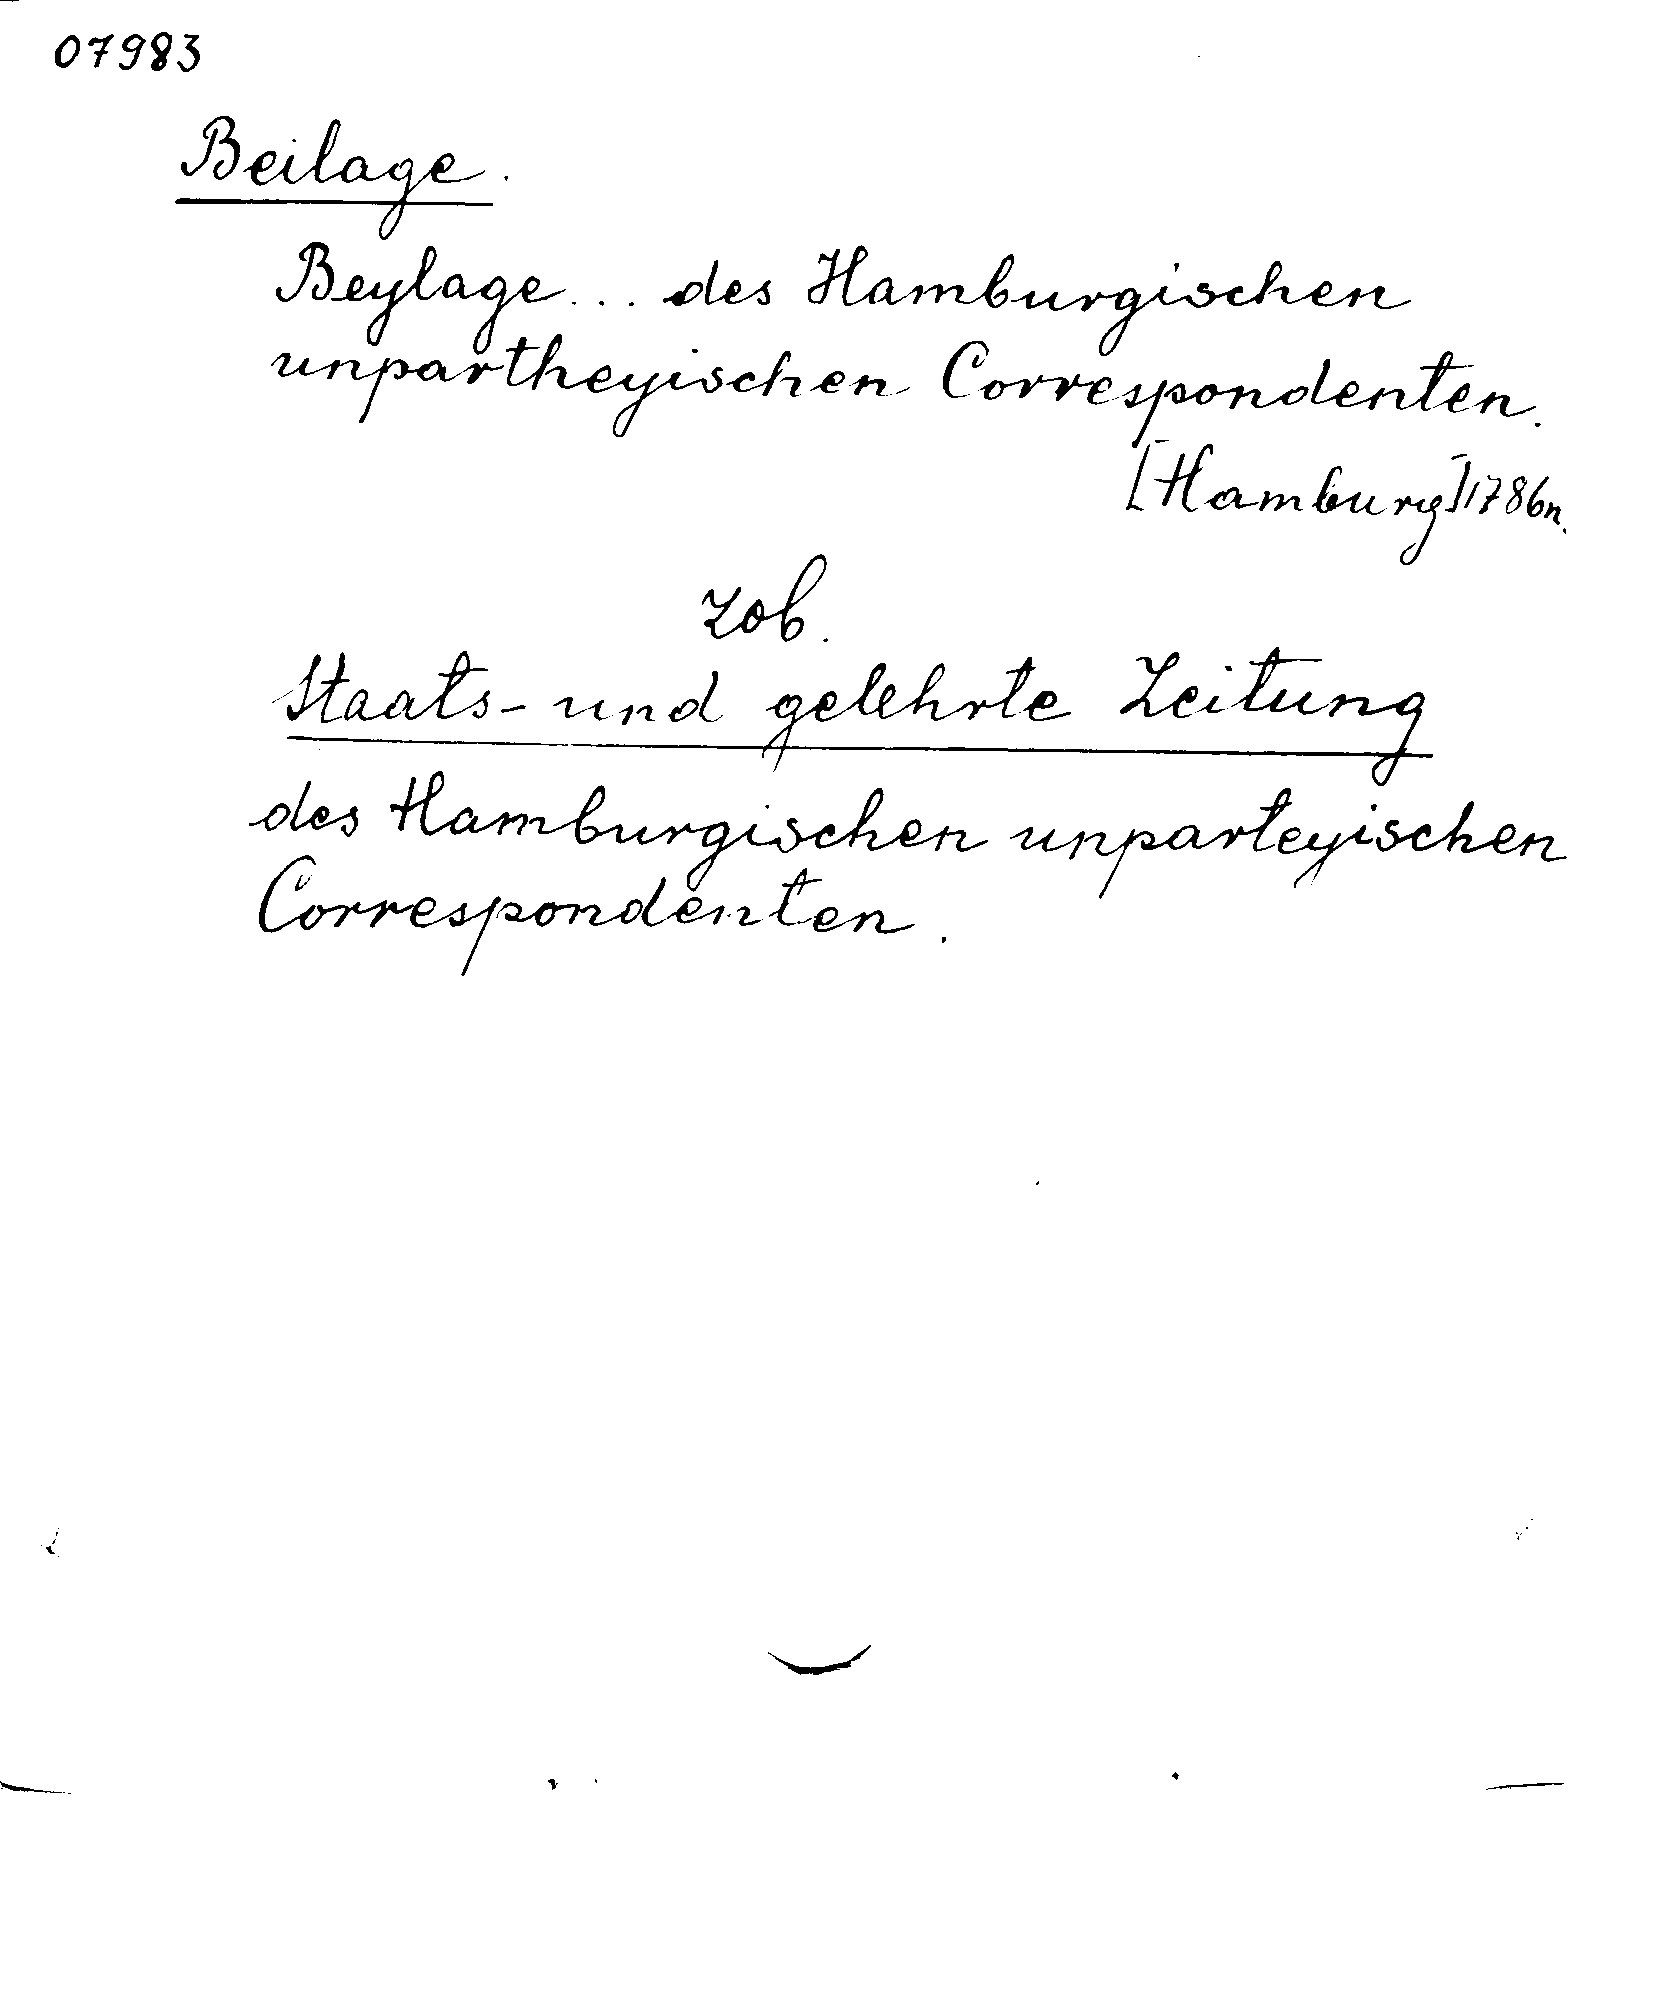 07983
Beilage.
Beylage... des Hamburgischen
unpartheyischen Correspondenten.
[Hamburg] 1786n.
zob.
Staats- und gelehrte Zeitung
des Hamburgischen unparteyischen
Correspondenten.